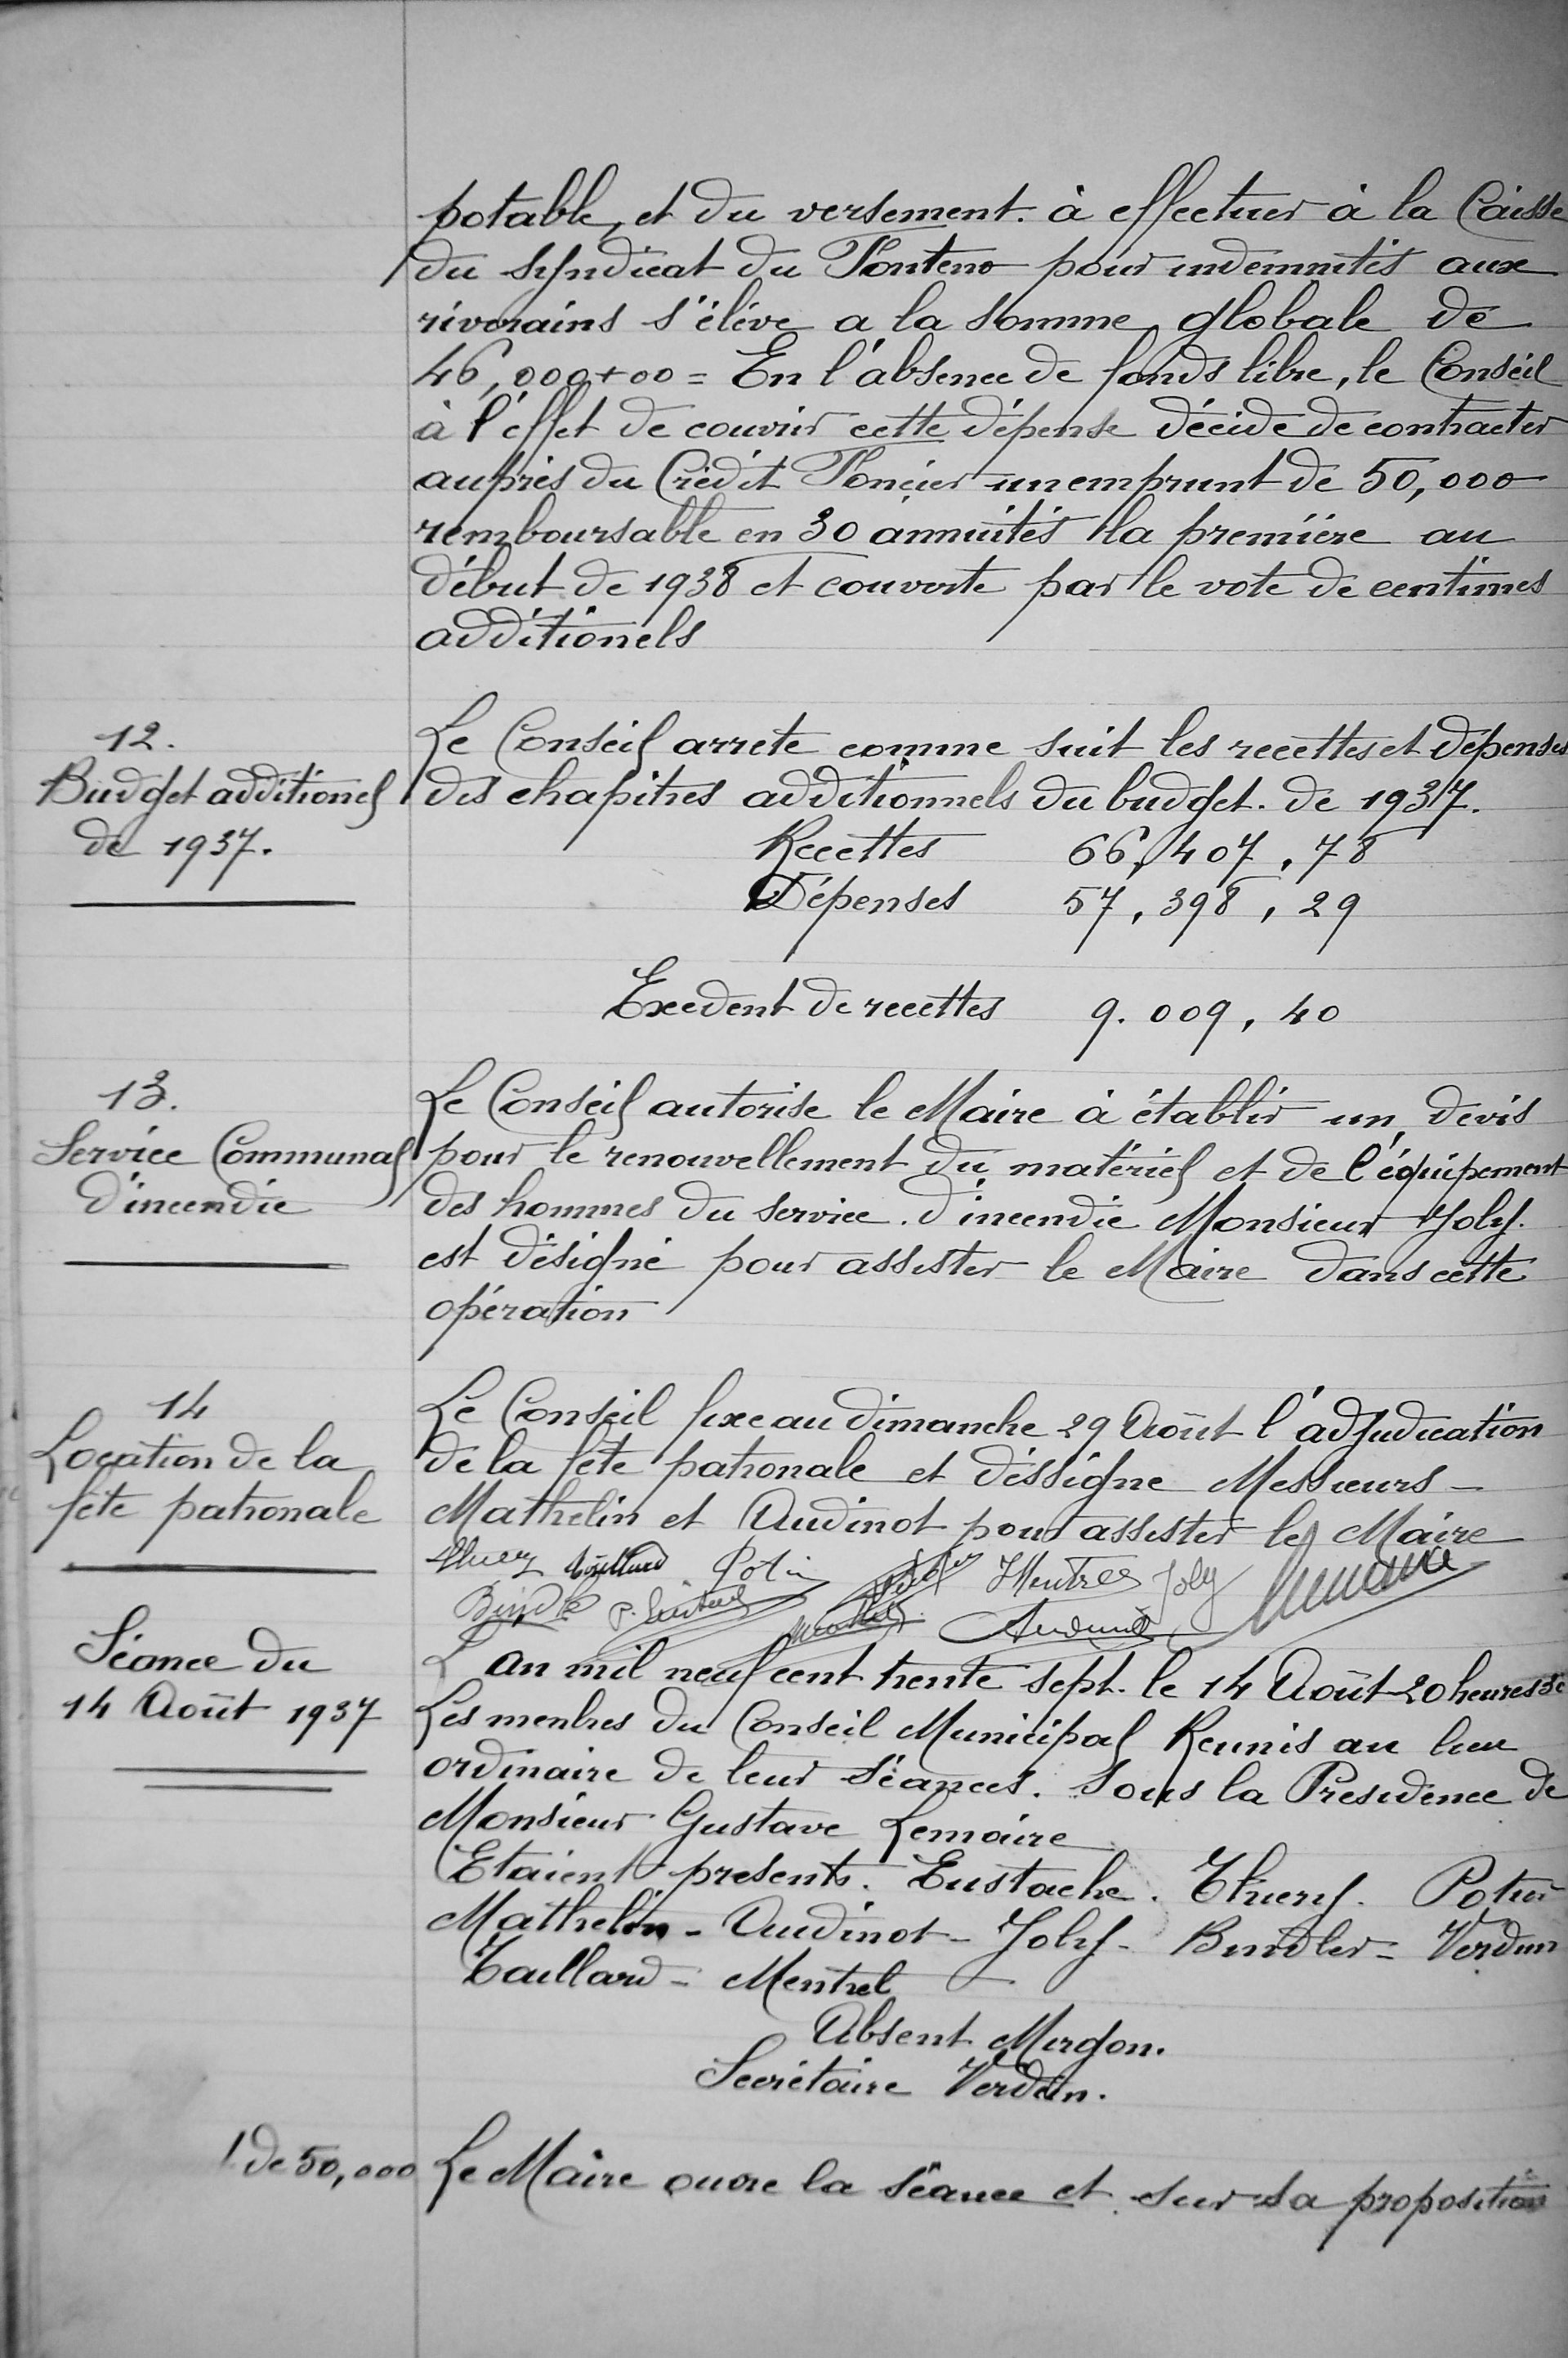 potable, et du versement. à effectuer à la Caisse
du syndicat du Fonteno pour indemnités aux
riverains s'élève a la somme globale de
46,000+00 = En l'absence de fonds libre, le Conseil
à l'effet de couvrir cette dépense décide de contracter
auprès du Crédit Foncier un emprunt de 50,000
remboursable en 30 annuités la première au
début de 1938 et couverte par le vote de centimes
additionels
12.
Budget additionel
de 1937.
Le Conseil arrete comme suit les recettes et dépenses
des chapitres additionnels du budget. de 1937.
Recettes 66,407,78
Dépenses 57,398,29
Exedent de recettes 9.009,40
13.
Service Communal
d'incendie
Le Conseil autorise le Maire à établir un devis
pour le renouvellement du matériel et de l'équipement
des hommes du service. d'incendie Monsieur Joly.
est désigné pour assister le Maire dans cette
opération
14
Location de la
fête patronale
Le Conseil fixe au dimanche 29 Août l'adjudication
de la fête patronale et déssigne Messieurs -
Mathelin et Audinot pour assister le Maire
Potin Joly
Séance du
14 Août 1937
L'an mil neuf cent trente sept. le 14 Août 20 heures 30
Les menbres du Conseil Municipal Reunis au lieu
ordinaire de leur séances. Sous la Présidence de
Monsieur Gustave Lemaire
Etaient présents. Eustache. Thuery. Potin
Mathelin - Audinot - Joly - Bindler = Verdun
Taillard = Mentrel
Absent Mugon.
Secrétaire Verdun.
1 de 50,000
Le Maire ouvre la séance et sur sa proposition